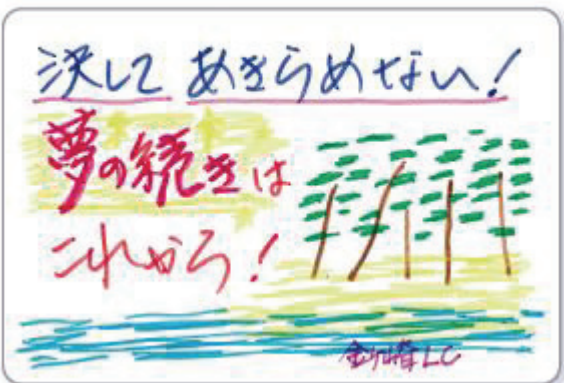 決して あきらめない!
夢の続きは
これから!
LC